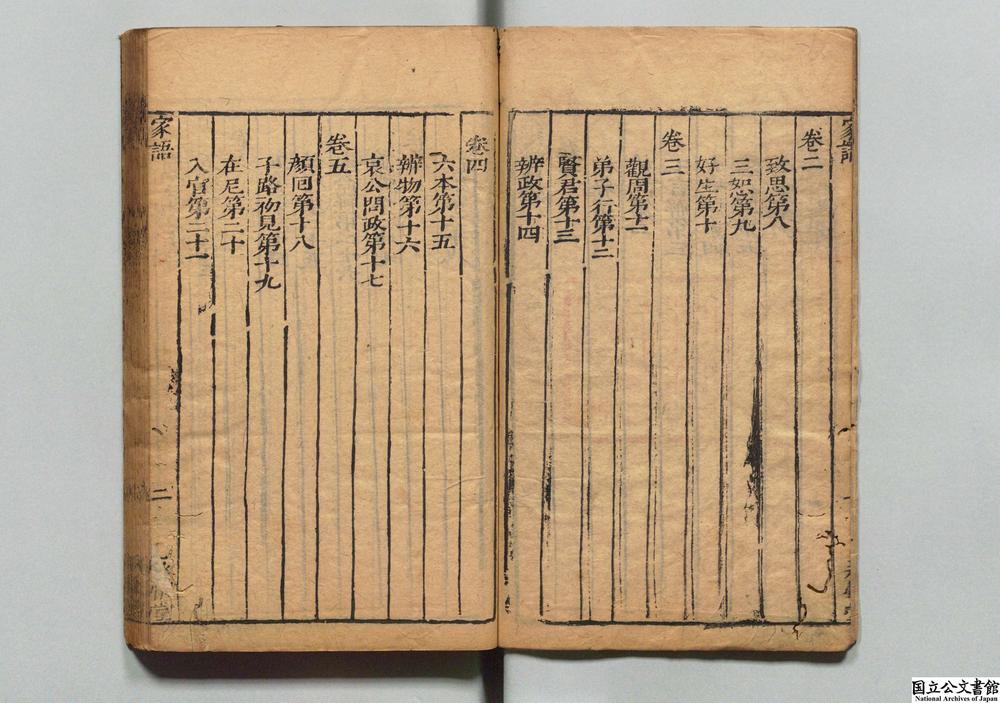 家語
卷二
致思第八
三恕第九
好生第十
卷三
觀周第十一
弟子行第十二
賢君第十三
辨政第十四
卷四
六本第十五
辨物第十六
哀公問政第十七
卷五
顏回第十八
子路初見第十九
在厄第二十
入官第二十一
家語
二
堂
国立公文書館
National Archives of Japan